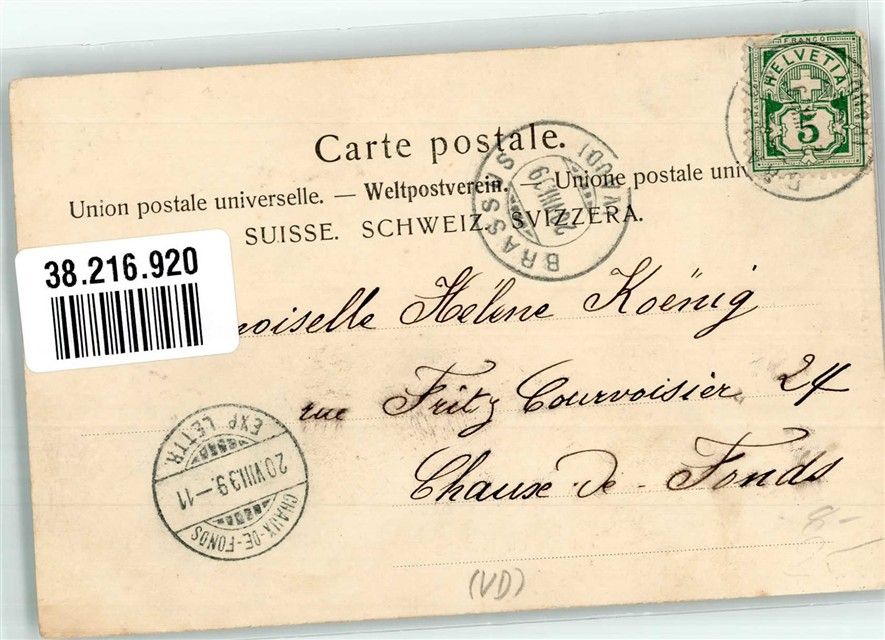 FRANCO
HELVETIA
5
Carte postale.
Union postale universelle. — Weltpostverein. — Unione postale uni
SUISSE. SCHWEIZ. SVIZZERA.
BRASSUS
38.216.920
moiselle Hélène Koënig
rue Fritz Courvoisier 24
Chaux-de-Fonds
EXP. LETTR.
20.VIII.99.-11
CHAUX-DE-FONDS
(VD)
8-